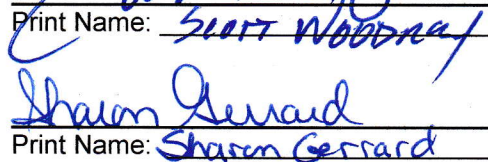 Print Name: Scott Woodray
Sharon Gerrard
Print Name: Sharon Gerrard